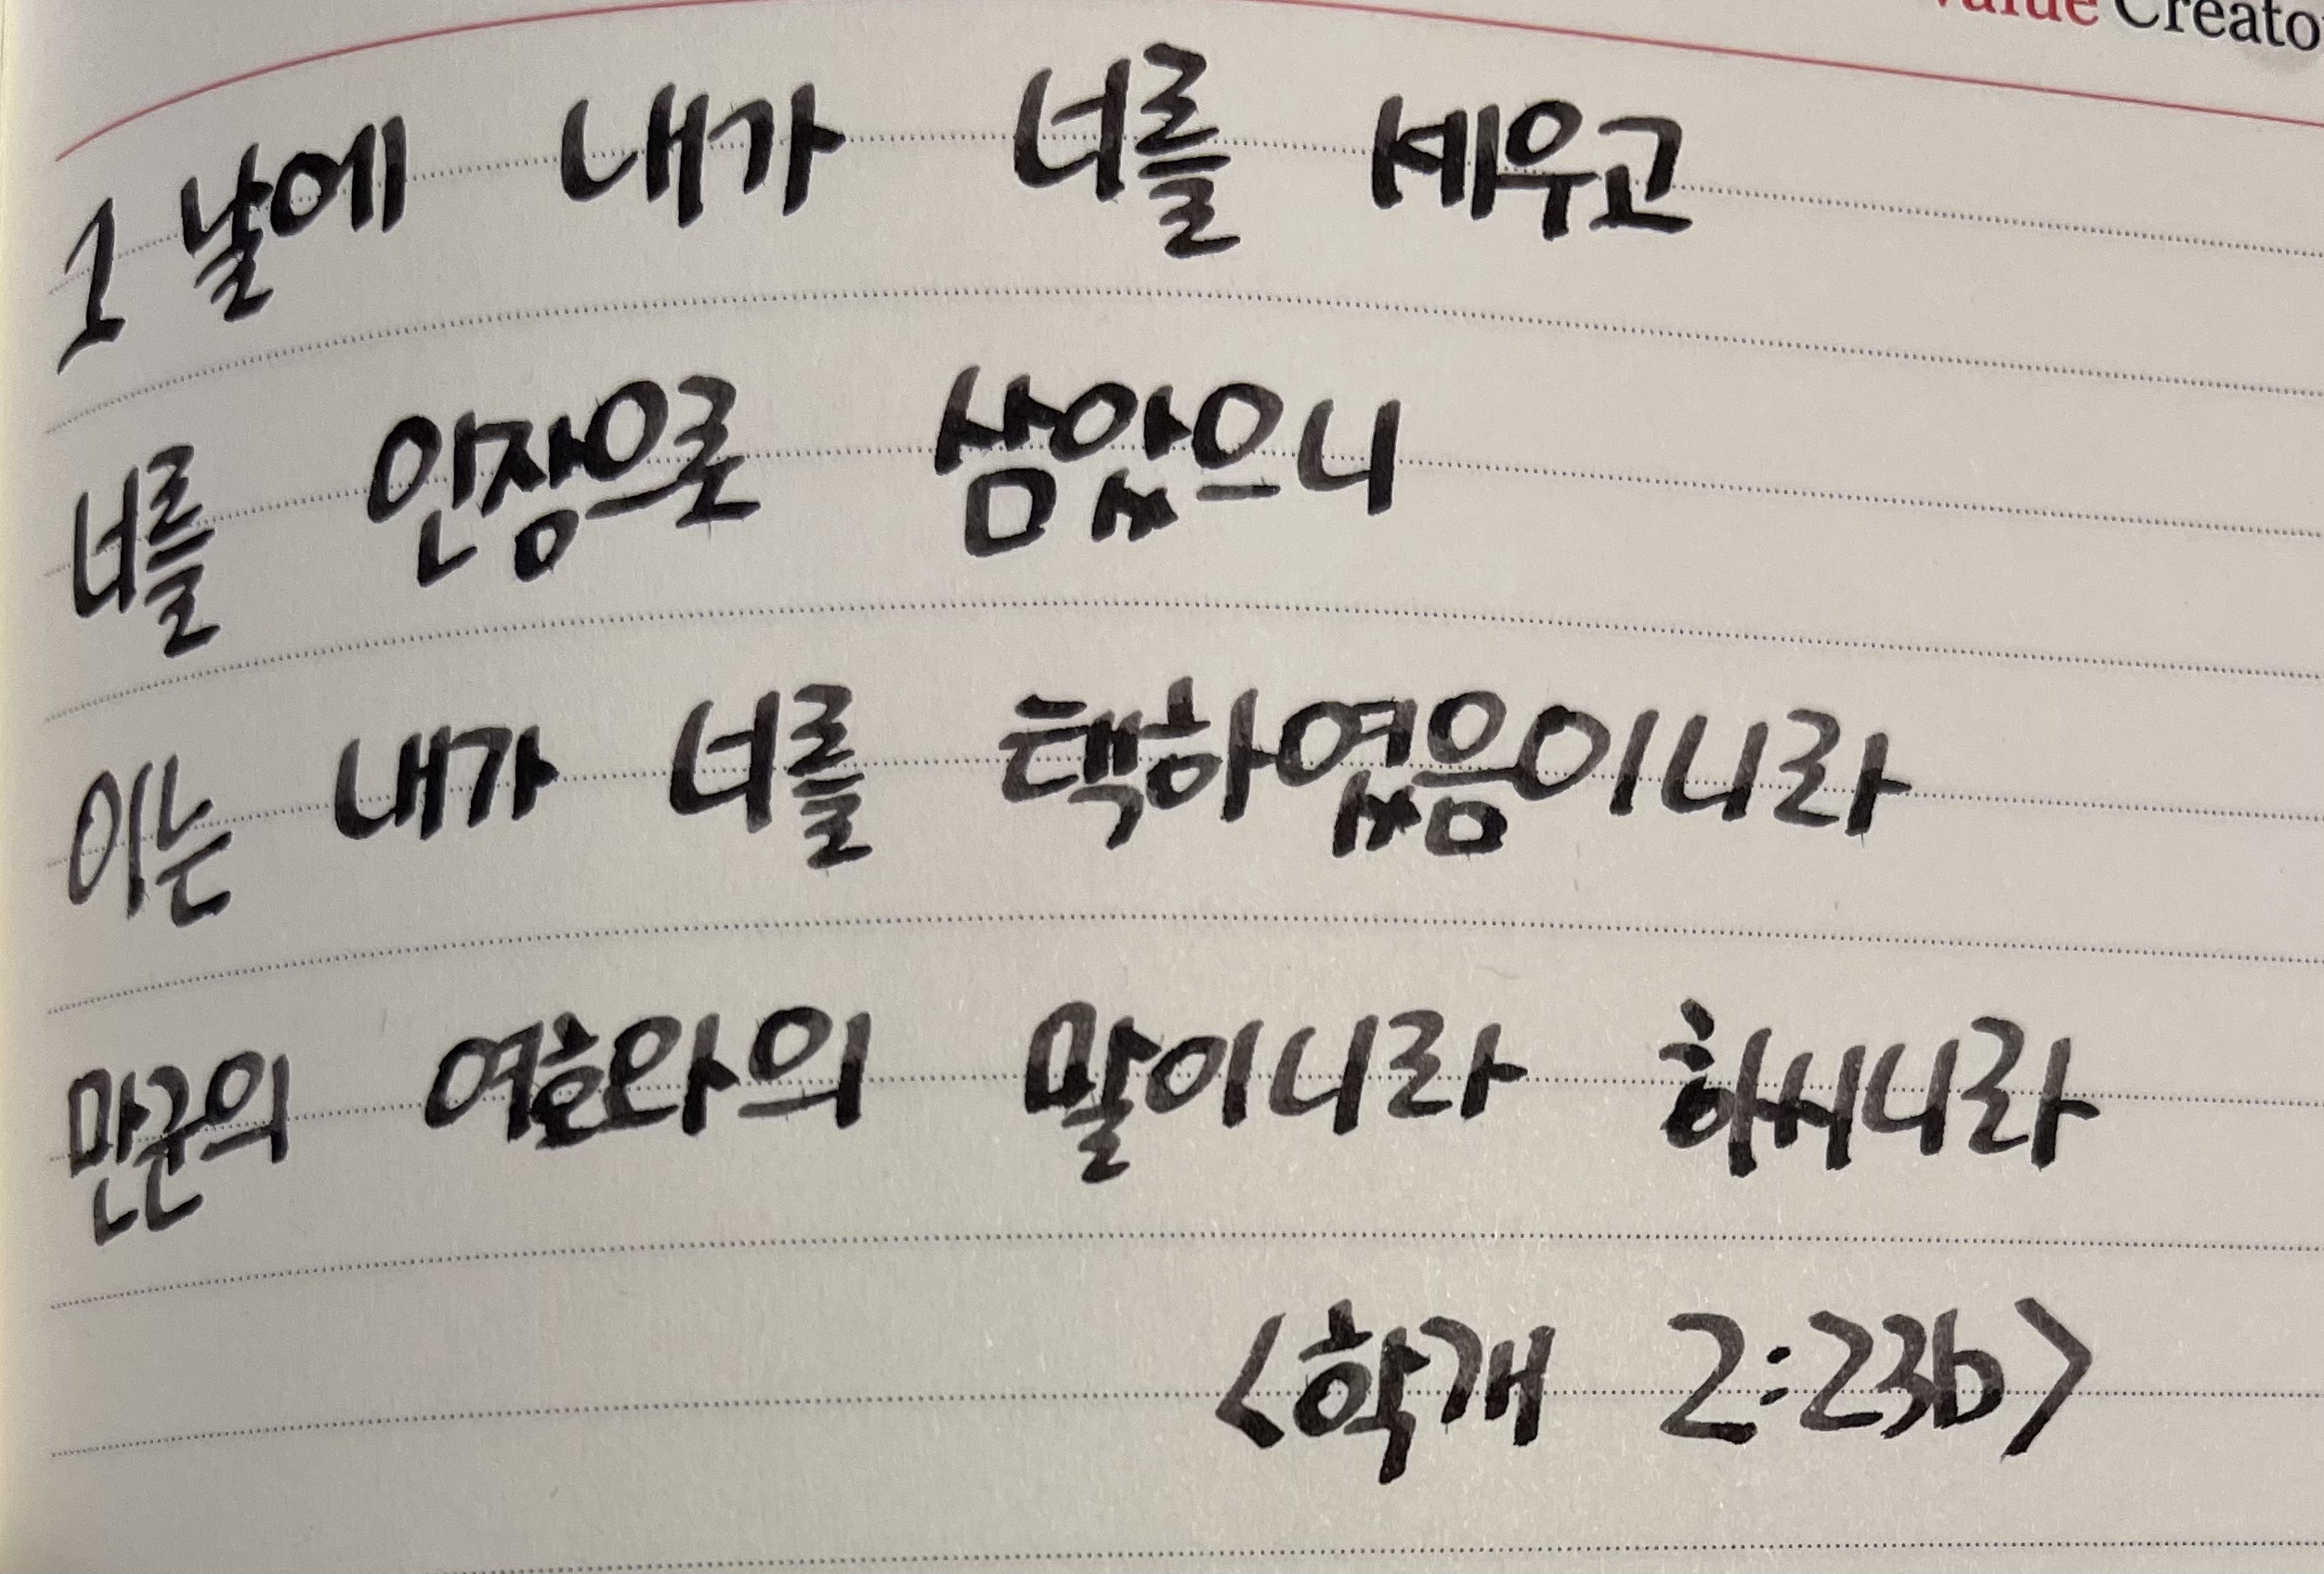 Value Creato
그 날에 내가 너를 세우고
너를 인장으로 삼았으니
이는 내가 너를 택하였음이니라
만군의 여호와의 말이니라 하시니라
<학개 2:23b>